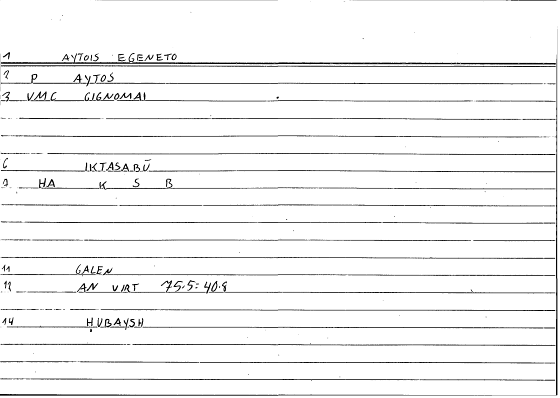 1 AYTOIS EGENETO
2 P AYTOS
3 VMC GIGNOMAI
6 IKTASABŪ
9 HA K S B
11 GALEN
12 AN VIRT 75.5 = 40.8
14 ḤUBAYSH